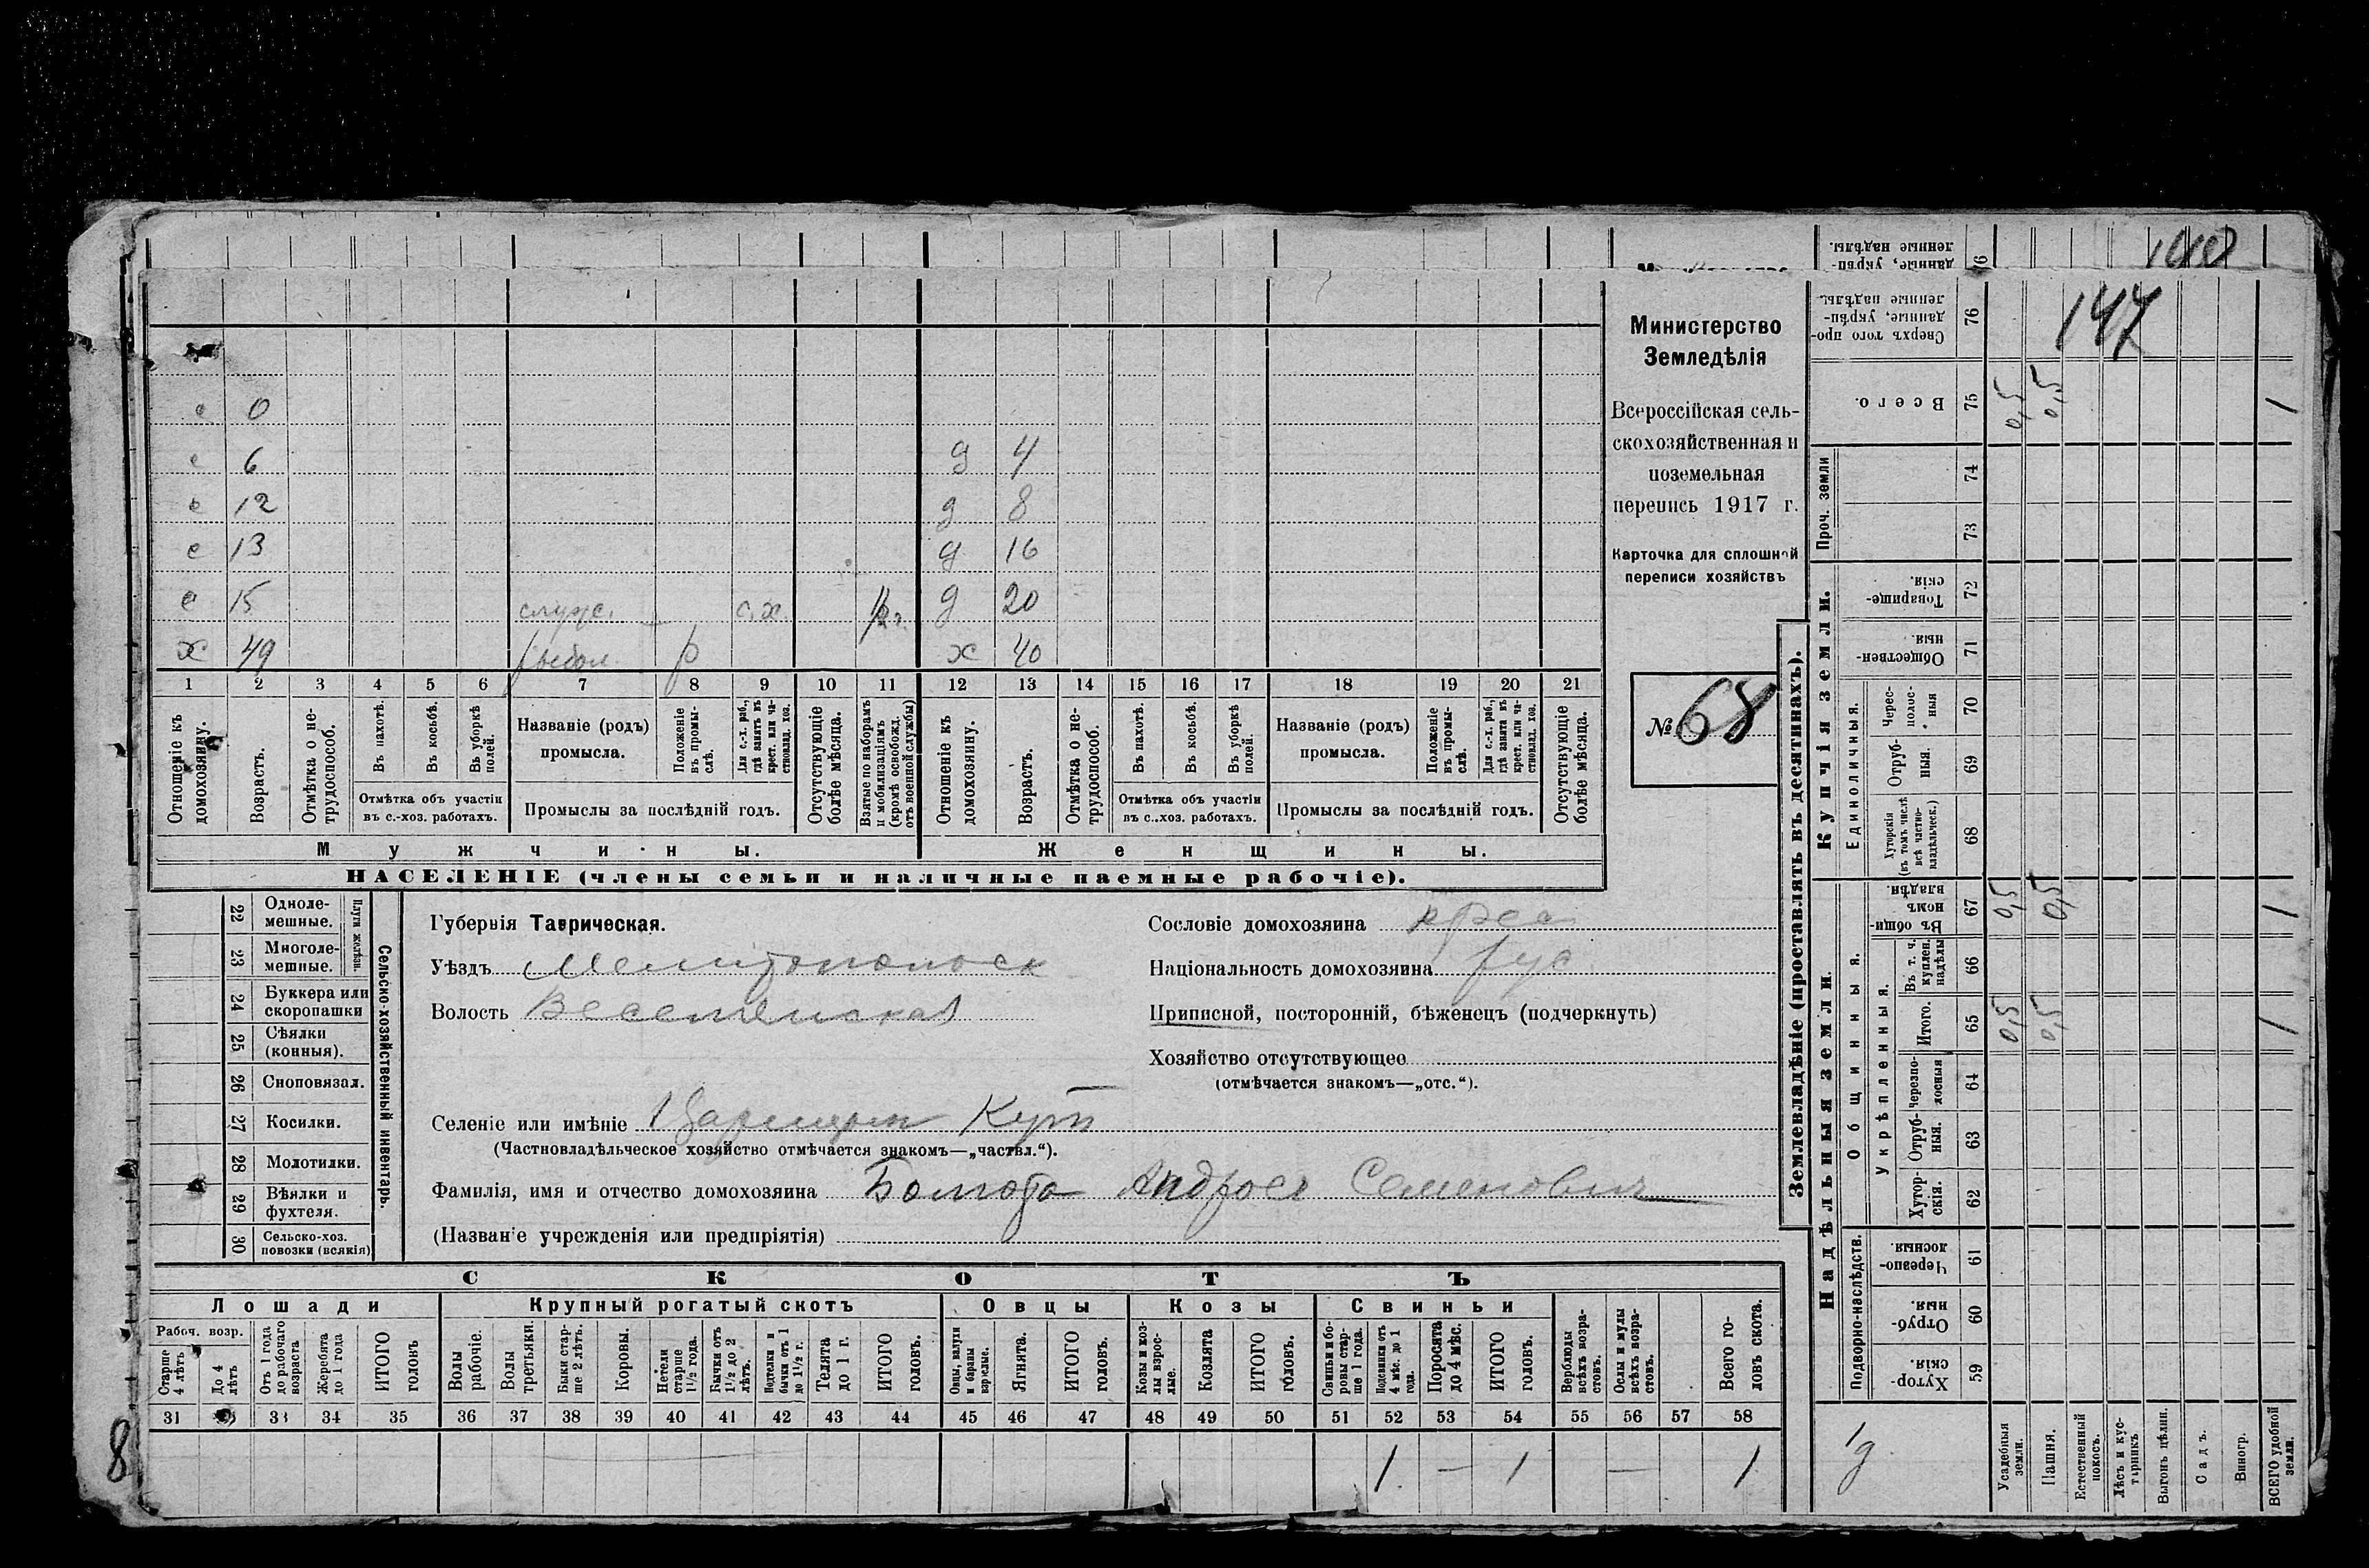 147
0
6
12
13
15
х 49
служ. с.х.
рыбол. р
д 4
д 8
д 16
д 20
х 40
1 2 3 4 5 6 7 8 9 10 11 12 13 14 15 16 17 18 19 20 21
Отношеніе къ домохозяину.
Возрастъ.
Отмѣтка о нетрудоспособ.
Въ пахотѣ.
Въ косьбѣ.
Въ уборкѣ полей.
Отмѣтка объ участіи
въ с.-хоз. работахъ.
Названіе (родъ)
промысла.
Положеніе въ промыслѣ.
Для с.-х. раб., гдѣ занятъ въ крест. или частновлад. хоз.
Промыслы за послѣдній годъ.
Отсутствующіе болѣе мѣсяца.
Взятые по наборамъ и мобилизаціямъ (кромѣ освобожд. отъ военной службы)
Отношеніе къ домохозяину.
Возрастъ.
Отмѣтка о нетрудоспособ.
Въ пахотѣ.
Въ косьбѣ.
Въ уборкѣ полей.
Отмѣтка объ участіи
въ с..хоз. работахъ.
Названіе (родъ)
промысла.
Положеніе въ промыслѣ.
Для с.-х. раб., гдѣ занята въ крест. или частновлад. хоз.
Промыслы за послѣдній годъ.
Отсутствующіе болѣе мѣсяца.
Мужчины.
Женщины.
НАСЕЛЕНІЕ (члены семьи и наличные наемные рабочіе).
Министерство
Земледѣлія
Всероссійская сель-
скохозяйственная и
поземельная
перепись 1917 г.
Карточка для сплошной
переписи хозяйствъ
№ 68
22 Одноле-
мешные.
23 Многоле-
мешные.
Плуги желѣзн.
24 Буккера или
скоропашки
25 Сѣялки
(конныя).
26 Сноповязал.
27 Косилки.
28 Молотилки.
29 Вѣялки и
фухтеля.
30 Сельско-хоз.
повозки (всякія)
Сельско-хозяйственный инвентарь.
Губернія Таврическая.
Уѣздъ
Волость
Селеніе или имѣніе Кут
(Частновладѣльческое хозяйство отмѣчается знакомъ—„частвл.“).
Фамилія, имя и отчество домохозяина Андрей Семенович
(Названіе учрежденія или предпріятія)
Сословіе домохозяина крес
Національность домохозяина рус.
Приписной, посторонній, бѣженецъ (подчеркнуть)
Хозяйство отсутствующее
(отмѣчается знакомъ—„отс.“).
СКОТЪ
Лошади
Крупный рогатый скотъ
Овцы
Козы
Свиньи
Рабоч. возр.
Старше 4 лѣтъ
До 4 лѣтъ
Отъ 1 года до рабочаго возраста
Жеребята до 1 года
ИТОГО головъ
Волы рабочіе.
Волы третьяки.
Быки старше 2 лѣтъ.
Коровы.
Нетели старше 1½ года.
Бычки отъ 1½ до 2 лѣтъ.
Подтелки и бычки отъ 1 до 1½ г.
Телята до 1 г.
ИТОГО головъ.
Овцы, валухи и бараны взрослые.
Ягнята.
ИТОГО головъ.
Козы и козлы взрослые.
Козлята
ИТОГО головъ.
Свиньи боровы старше 1 года.
Подсвинки отъ 4 мѣс. до 1 года.
Поросята до 4 мѣс.
ИТОГО головъ.
Верблюды всѣхъ возрастовъ.
Ослы и мулы всѣхъ возрастовъ.
Всего головъ скота.
31 33 34 35 36 37 38 39 40 41 42 43 44 45 46 47 48 49 50 51 52 53 54 55 56 57 58
1 — 1 — 1
8
Землевладѣніе (проставлять въ десятинахъ).
Надѣльныя земли.
Купчія земли.
Проч. земли
Подворно-наслѣдств.
Общинныя.
Укрѣпленныя.
Единоличныя.
Сверхъ того проданные, укрѣпленные надѣлы. 76
Всего. 75 0,5 0,5 1
74
73
Товарищескія. 72
Общественныя. 71
Чересполосныя 70
Отрубныя. 69
Хуторскія (въ томъ числѣ всѣ частновладѣльческ.) 68
Въ общинномъ владѣн. 67 0,5 0,5 1
Въ т. ч. куплен. надѣлы 66
Итого. 65 0,5 0,5 1
Черезполосныя 64
Отрубныя. 63
Хуторскія. 62
Черезполосныя 61
Отрубныя. 60
Хуторскія 59
Усадебныя земли.
Пашня.
Естественный покосъ.
Лѣсъ и кустарникъ
Выгонъ цѣлин.
Садъ.
Виногр.
ВСЕГО удобной земли.